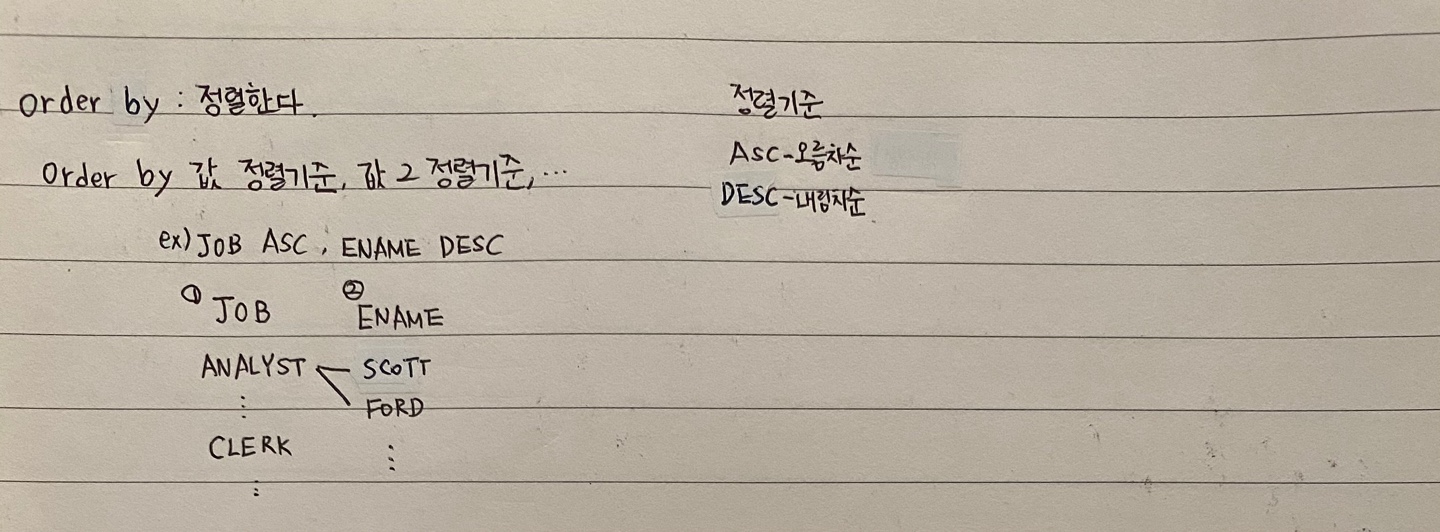 order by : 정렬한다.
order by 값 정렬기준, 값 2 정렬기준, ...
ex) JOB ASC, ENAME DESC
① JOB ② ENAME
ANALYST SCOTT
FORD
⋮
CLERK ⋮
⋮
정렬기준
ASC-오름차순
DESC-내림차순